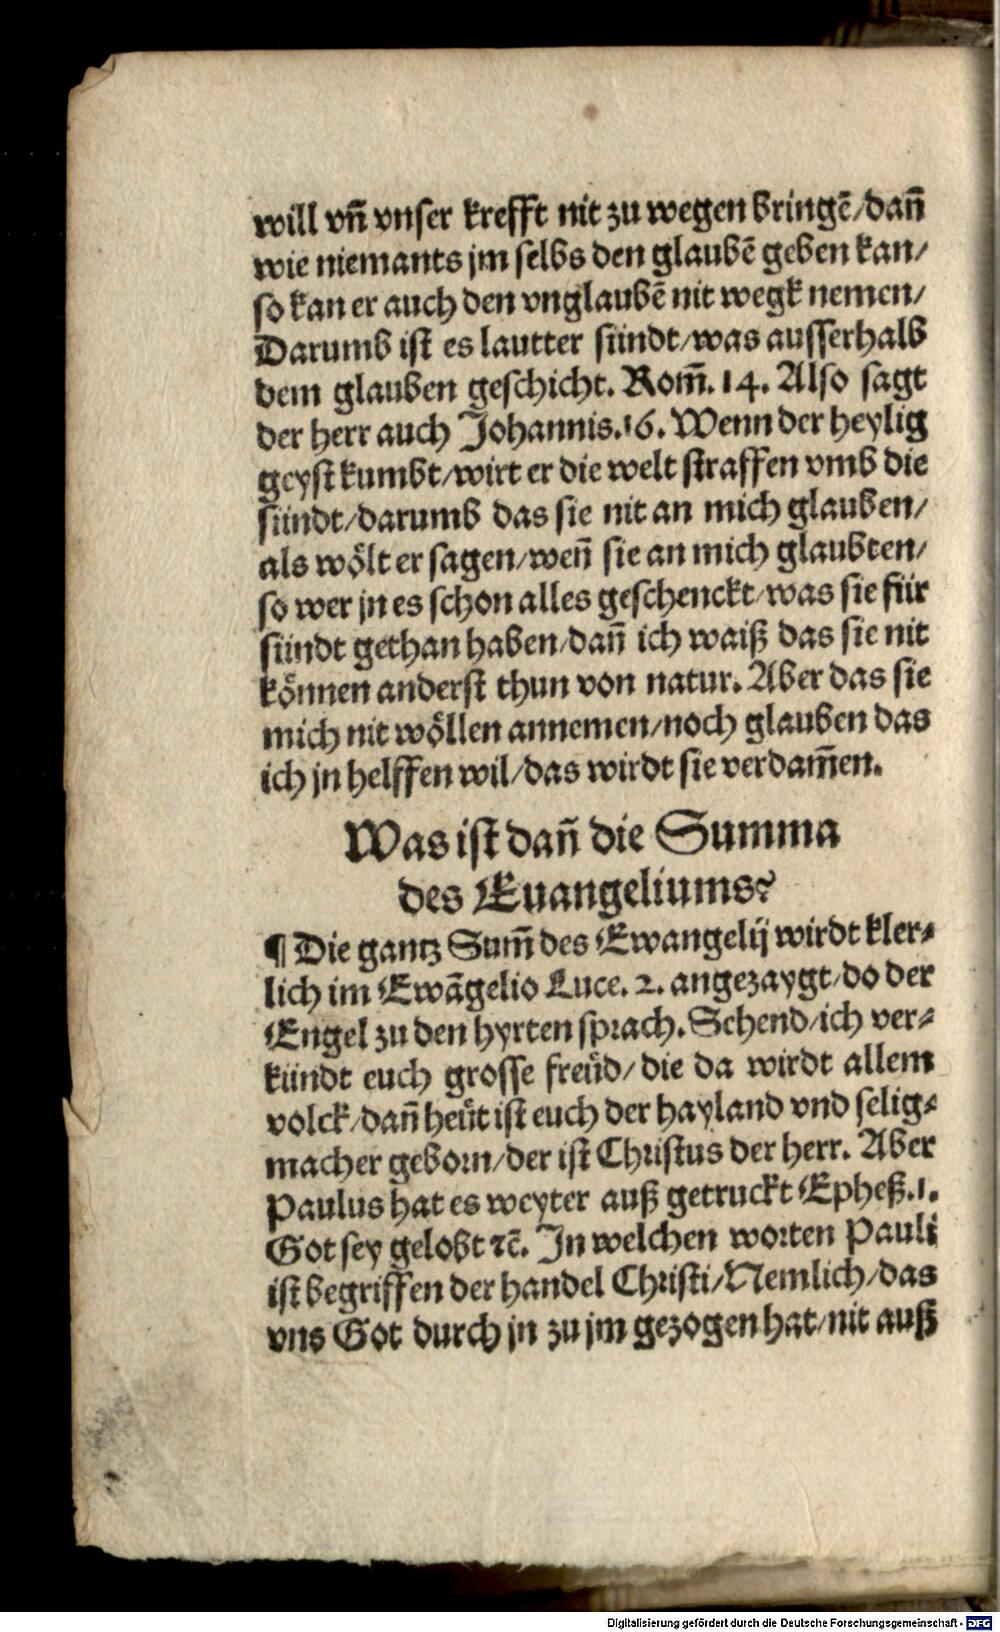 will vn̄ vnser krefft nit zu wegen bringē/dan̄
wie niemants jm selbs den glaubē geben kan/
so kan er auch den vnglaubē nit wegk nemen/
Darumb ist es lautter sündt/was ausserhalb
dem glauben geschicht. Rom̄. 14. Also sagt
der herr auch Johannis.16. Wenn der heylig
geyst kumbt/wirt er die welt straffen vmb die
sündt/darumb das sie nit an mich glauben/
als wölt er sagen/wen̄ sie an mich glaubten/
so wer jn es schon alles geschenckt/was sie für
sündt gethan haben/dan̄ ich waiß das sie nit
können anderst thun von natur. Aber das sie
mich nit wöllen annemen/noch glauben das
ich jn helffen wil/das wirdt sie verdam̄en.
Was ist dan̄ die Summa
des Euangeliums?
¶ Die gantz Sum̄ des Ewangelij wirdt kler⸗
lich im Ewāgelio Luce. 2. angezaygt/do der
Engel zu den hyrten sprach. Sehend/ich ver⸗
kündt euch grosse freüd/die da wirdt allem
volck/dan̄ heüt ist euch der hayland vnd selig⸗
macher geborn/der ist Christus der herr. Aber
Paulus hat es weyter auß getruckt Epheß.1.
Got sey gelobt ⁊c̄. In welchen worten Pauli
ist begriffen der handel Christi/Nemlich/das
vns Got durch jn zu jm gezogen hat/nit auß
Digitalisierung gefördert durch die Deutsche Forschungsgemeinschaft - DFG